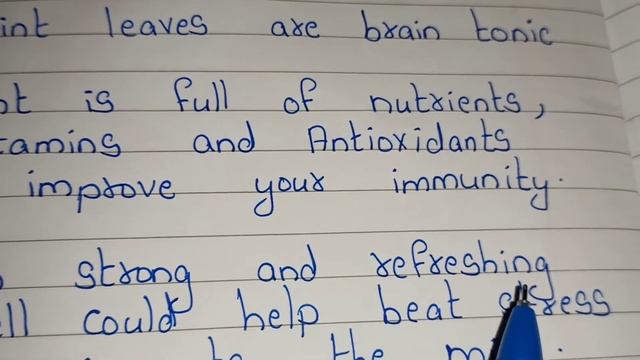 int leaves are brain tonic
ot is full of nutrients,
tamins and Antioxidants
improve your immunity.
strong and refreshing
ell could help beat stress
to the